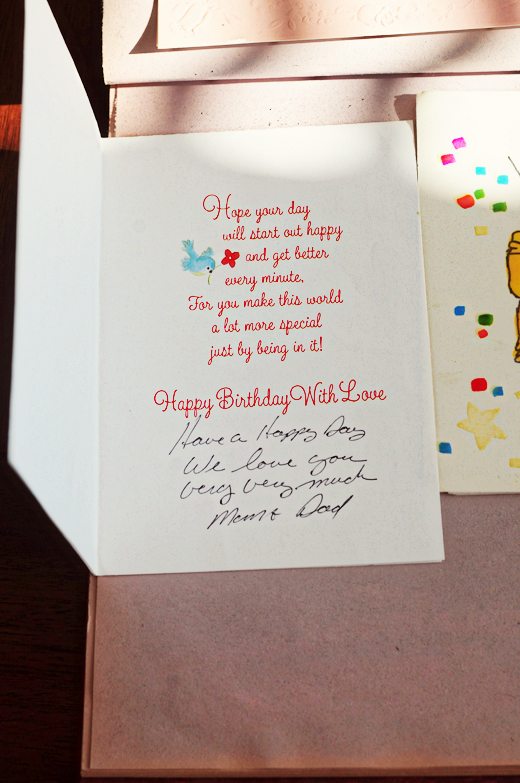 Hope your day
will start out happy
and get better
every minute,
For you make this world
a lot more special
just by being in it!
Happy Birthday With Love
Have a Happy Day
We love you
very very much
Mom & Dad